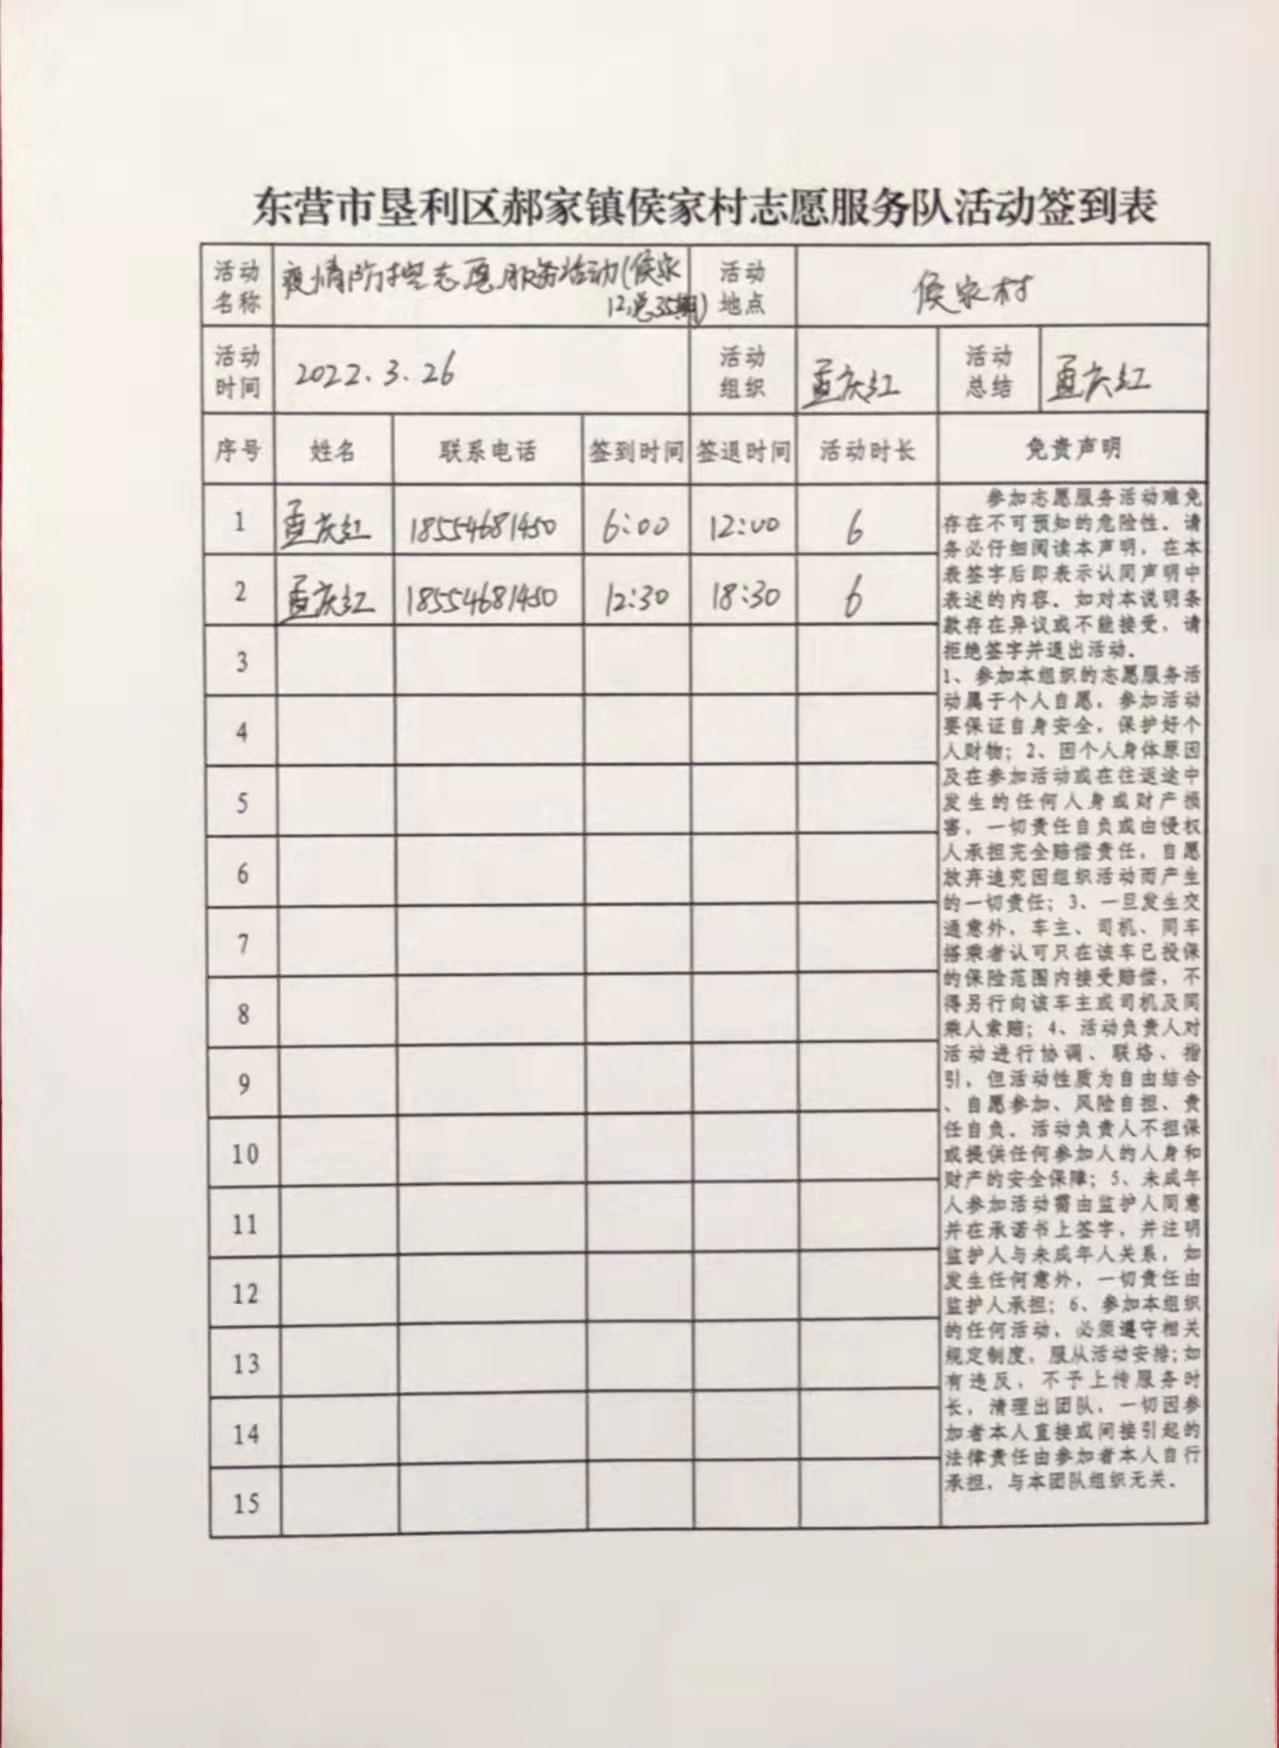 东营市垦利区郝家镇侯家村志愿服务队活动签到表
活动名称 疫情防控志愿服务活动(侯家 活动地点 侯家村
12,总35期)
活动时间 2022.3.26 活动组织 孟庆红 活动总结 孟庆红
序号 姓名 联系电话 签到时间 签退时间 活动时长 免责声明
1 孟庆红 18554681450 6:00 12:00 6
2 孟庆红 18554681450 12:30 18:30 6
3
4
5
6
7
8
9
10
11
12
13
14
15
参加志愿服务活动难免
存在不可预知的危险性。请
务必仔细阅读本声明,在本
表签字后即表示认同声明中
表述的内容。如对本说明条
款存在异议或不能接受,请
拒绝签字并退出活动。
1、参加本组织的志愿服务活
动属于个人自愿,参加活动
要保证自身安全,保护好个
人财物;2、因个人身体原因
及在参加活动或在往返途中
发生的任何人身或财产损
害,一切责任自负或由侵权
人承担完全赔偿责任,自愿
放弃追究因组织活动而产生
的一切责任;3、一旦发生交
通意外,车主、司机、同车
搭乘者认可只在该车已投保
的保险范围内接受赔偿,不
得另行向该车主或司机及同
乘人索赔;4、活动负责人对
活动进行协调、联络、指
引,但活动性质为自由结合
、自愿参加、风险自担、责
任自负。活动负责人不担保
或提供任何参加人的人身和
财产的安全保障;5、未成年
人参加活动需由监护人同意
并在承诺书上签字,并注明
监护人与未成年人关系,如
发生任何意外,一切责任由
监护人承担;6、参加本组织
的任何活动,必须遵守相关
规定制度,服从活动安排;如
有违反,不予上传服务时
长,清理出团队,一切因参
加者本人直接或间接引起的
法律责任由参加者本人自行
承担,与本团队组织无关。